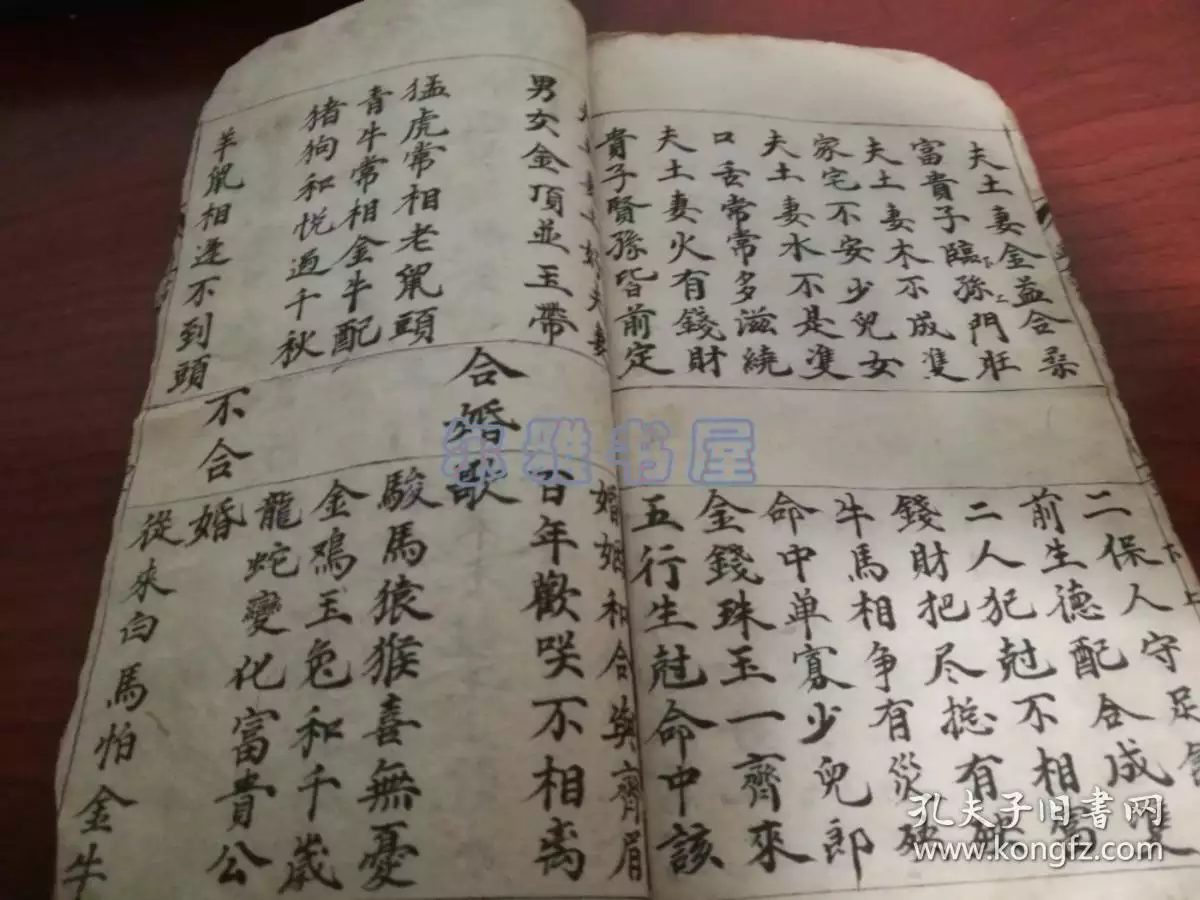 夫土妻金益合柔
富貴子臨孫門旺
夫土妻木不成隻
家宅不安少兒女
夫土妻水不是隻
口舌常常多滋繞
夫土妻火有錢財
貴子賢孫皆前定
下上
二保人守足
前生德配合成隻
二人犯尅不相
錢財把尽捴有
牛馬相争有災
命中单寡少兒郎
金錢珠玉一齊來
五行生尅命中該
男女金頂並玉帶
猛虎常相老鼠頭
青牛常相金牛配
猪狗和悦過千秋
羊鼠相逢不到頭
合婚歌
不合婚
婚姻和合與齊眉
百年歡咲不相离
駿馬猿猴喜無憂
金鷄玉兔和千歲
龍蛇變化富貴公
從來白馬怕金牛
雅书屋
孔夫子旧書网
www.kongfz.com